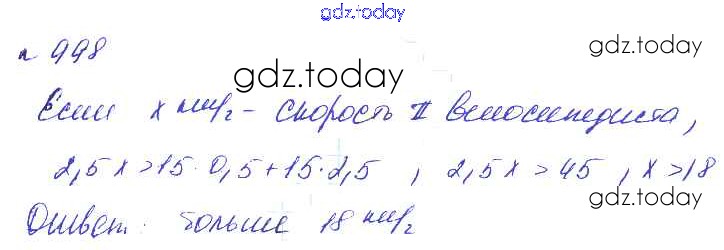 gdz.today
n 998
gdz.today
gdz.today
Если x км/ч - скорость II велосипедиста,
2,5x > 15 · 0,5 + 15 · 2,5 , 2,5x > 45 , x > 18
gdz.today
Ответ: больше 18 км/ч